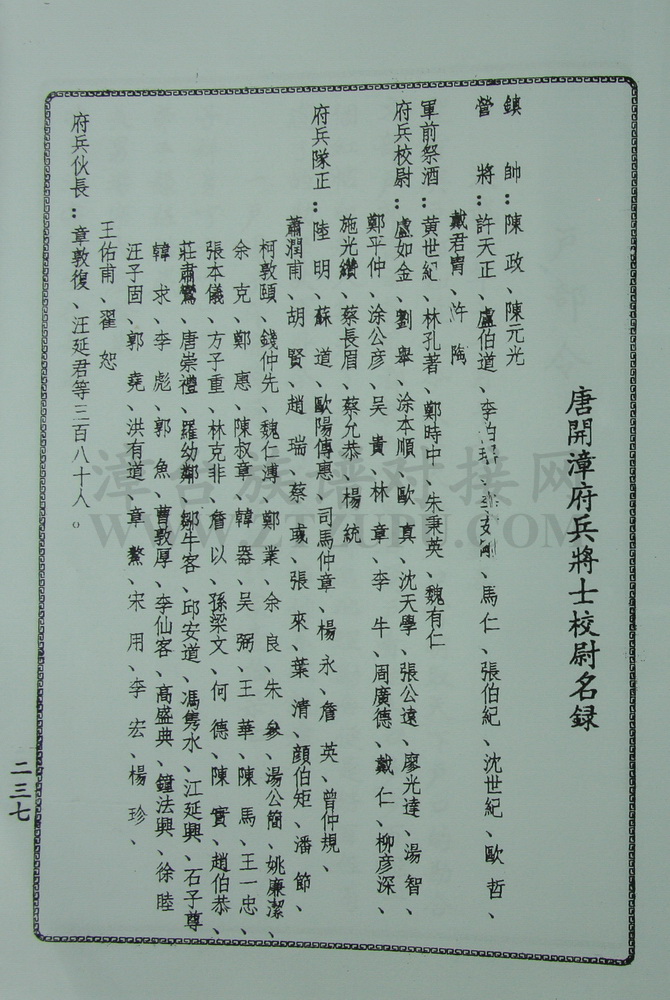 唐開漳府兵將士校尉名録
鎮　帥：陳　政、陳元光
營　將：許天正、盧伯道、李伯、馬　仁、張伯紀、沈世紀、歐　哲、
戴君冑、許　陶
軍前祭酒：黄世紀、林孔著、鄭時中、朱秉英、魏有仁
府兵校尉：盧如金、劉　舉、涂本順、歐　真、沈天學、張公遠、廖光達、湯　智、
鄭平仲、涂公彦、吴　貴、林　章、李　牛、周廣德、戴　仁、柳彦深、
施光纘、蔡長眉、蔡允恭、楊　統
府兵隊正：陸　明、蘇　道、歐陽傳惠、司馬仲章、楊　永、詹　英、曾仲規、
蕭潤甫、胡　賢、趙　瑞、蔡　彧、張　來、葉　清、顔伯矩、潘　節、
柯敦頤、錢仲先、魏仁溥、鄭　業、余　良、朱　參、湯公簡、姚廉潔、
余　克、鄭　惠、陳叔章、韓　器、吴　弼、王　華、陳　馬、王一忠、
張本儀、方子重、林克非、詹　以、孫梁文、何　德、陳　實、趙伯恭、
莊肅鸞、唐崇禮、羅幼鄰、鄒牛客、邱安道、馮雋水、江延興、石子尊
韓　求、李　彪、郭　魚、曹敦厚、李仙客、高盛典、鐘法興、徐　睦
汪子固、郭　堯、洪有道、章　鰲、宋　用、李　宏、楊　珍、
王佑甫、翟　恕
府兵伙長：章敦復、汪延君等三百八十人。
二三七